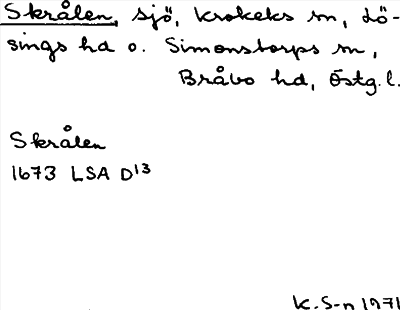 Skrålen, sjö, Krokeks sn, Lö-
sings hd o. Simonstorps sn,
Bråbo hd, Östg. l.
Skrålen
1673 LSA D13
K. S-n 1971